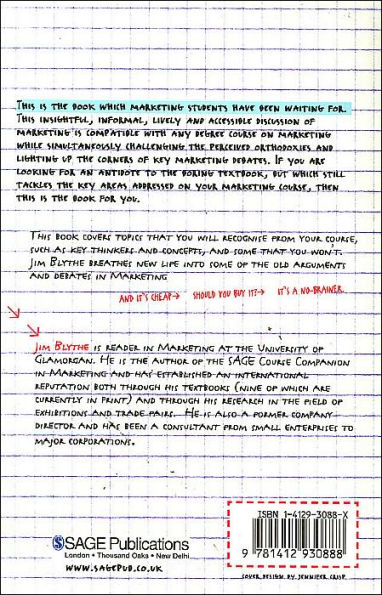 THIS IS THE BOOK WHICH MARKETING STUDENTS HAVE BEEN WAITING FOR.
THIS INSIGHTFUL, INFORMAL, LIVELY AND ACCESSIBLE DISCUSSION OF
MARKETING IS COMPATIBLE WITH ANY DEGREE COURSE ON MARKETING
WHILE SIMULTANEOUSLY CHALLENGING THE PERCEIVED ORTHODOXIES AND
LIGHTING UP THE CORNERS OF KEY MARKETING DEBATES. IF YOU ARE
LOOKING FOR AN ANTIDOTE TO THE BORING TEXTBOOK, BUT WHICH STILL
TACKLES THE KEY AREAS ADDRESSED ON YOUR MARKETING COURSE, THEN
THIS IS THE BOOK FOR YOU.
THIS BOOK COVERS TOPICS THAT YOU WILL RECOGNISE FROM YOUR COURSE,
SUCH AS KEY THINKERS AND CONCEPTS, AND SOME THAT YOU WON'T.
JIM BLYTHE BREATHES NEW LIFE INTO SOME OF THE OLD ARGUMENTS
AND DEBATES IN MARKETING
AND IT'S CHEAP→ SHOULD YOU BUY IT?→ IT'S A NO-BRAINER.
JIM BLYTHE IS READER IN MARKETING AT THE UNIVERSITY OF
GLAMORGAN. HE IS THE AUTHOR OF THE SAGE COURSE COMPANION
IN MARKETING AND HAS ESTABLISHED AN INTERNATIONAL
REPUTATION BOTH THROUGH HIS TEXTBOOKS (NINE OF WHICH ARE
CURRENTLY IN PRINT) AND THROUGH HIS RESEARCH IN THE FIELD OF
EXHIBITIONS AND TRADE FAIRS. HE IS ALSO A FORMER COMPANY
DIRECTOR AND HAS BEEN A CONSULTANT FROM SMALL ENTERPRISES TO
MAJOR CORPORATIONS.
ISBN 1-4129-3088-X
9 781412 930888
SAGE Publications
London • Thousand Oaks • New Delhi
WWW.SAGEPUB.CO.UK
COVER DESIGN BY JENNIFER CRISP